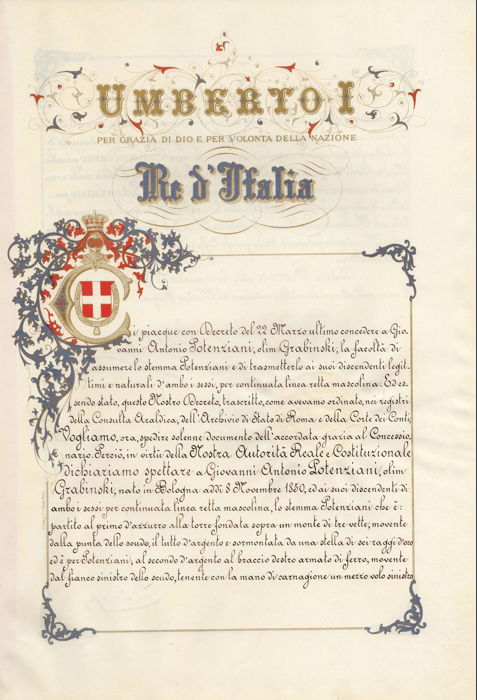 UMBERTO I
PER GRAZIA DI DIO E PER VOLONTA DELLA NAZIONE
Re d'Italia
Ci piacque con Decreto del 22 Marzo ultimo concedere a Gio-
vanni Antonio Potenziani, olim Grabinski, la facoltà di
assumere lo stemma Potenziani e di trasmetterlo ai suoi discendenti legit-
timi e naturali d'ambo i sessi, per continuata linea retta mascolina. Ed es-
sendo stato, questo Nostro Decreto, trascritto, come avevamo ordinato, nei registri
della Consulta Araldica, dell'Archivio di Stato di Roma e della Corte dei Conti,
Vogliamo, ora, spedire solenne documento dell'accordata grazia al Concessio-
nario. Perciò, in virtù della Nostra Autorità Reale e Costituzionale
dichiariamo spettare a Giovanni Antonio Potenziani, olim
Grabinski, nato in Bologna addì 8 Novembre 1850, ed ai suoi discendenti di
ambo i sessi per continuata linea retta mascolina, lo stemma Potenziani che è:
partito al primo d'azzurro alla torre fondata sopra un monte di tre vette, movente
dalla punta dello scudo, il tutto d'argento e sormontata da una stella di sei raggi d'oro
ed è per Potenziani; al secondo d'argento al braccio destro armato di ferro, movente
dal fianco sinistro dello scudo, tenente con la mano di carnagione un mezzo volo sinistro